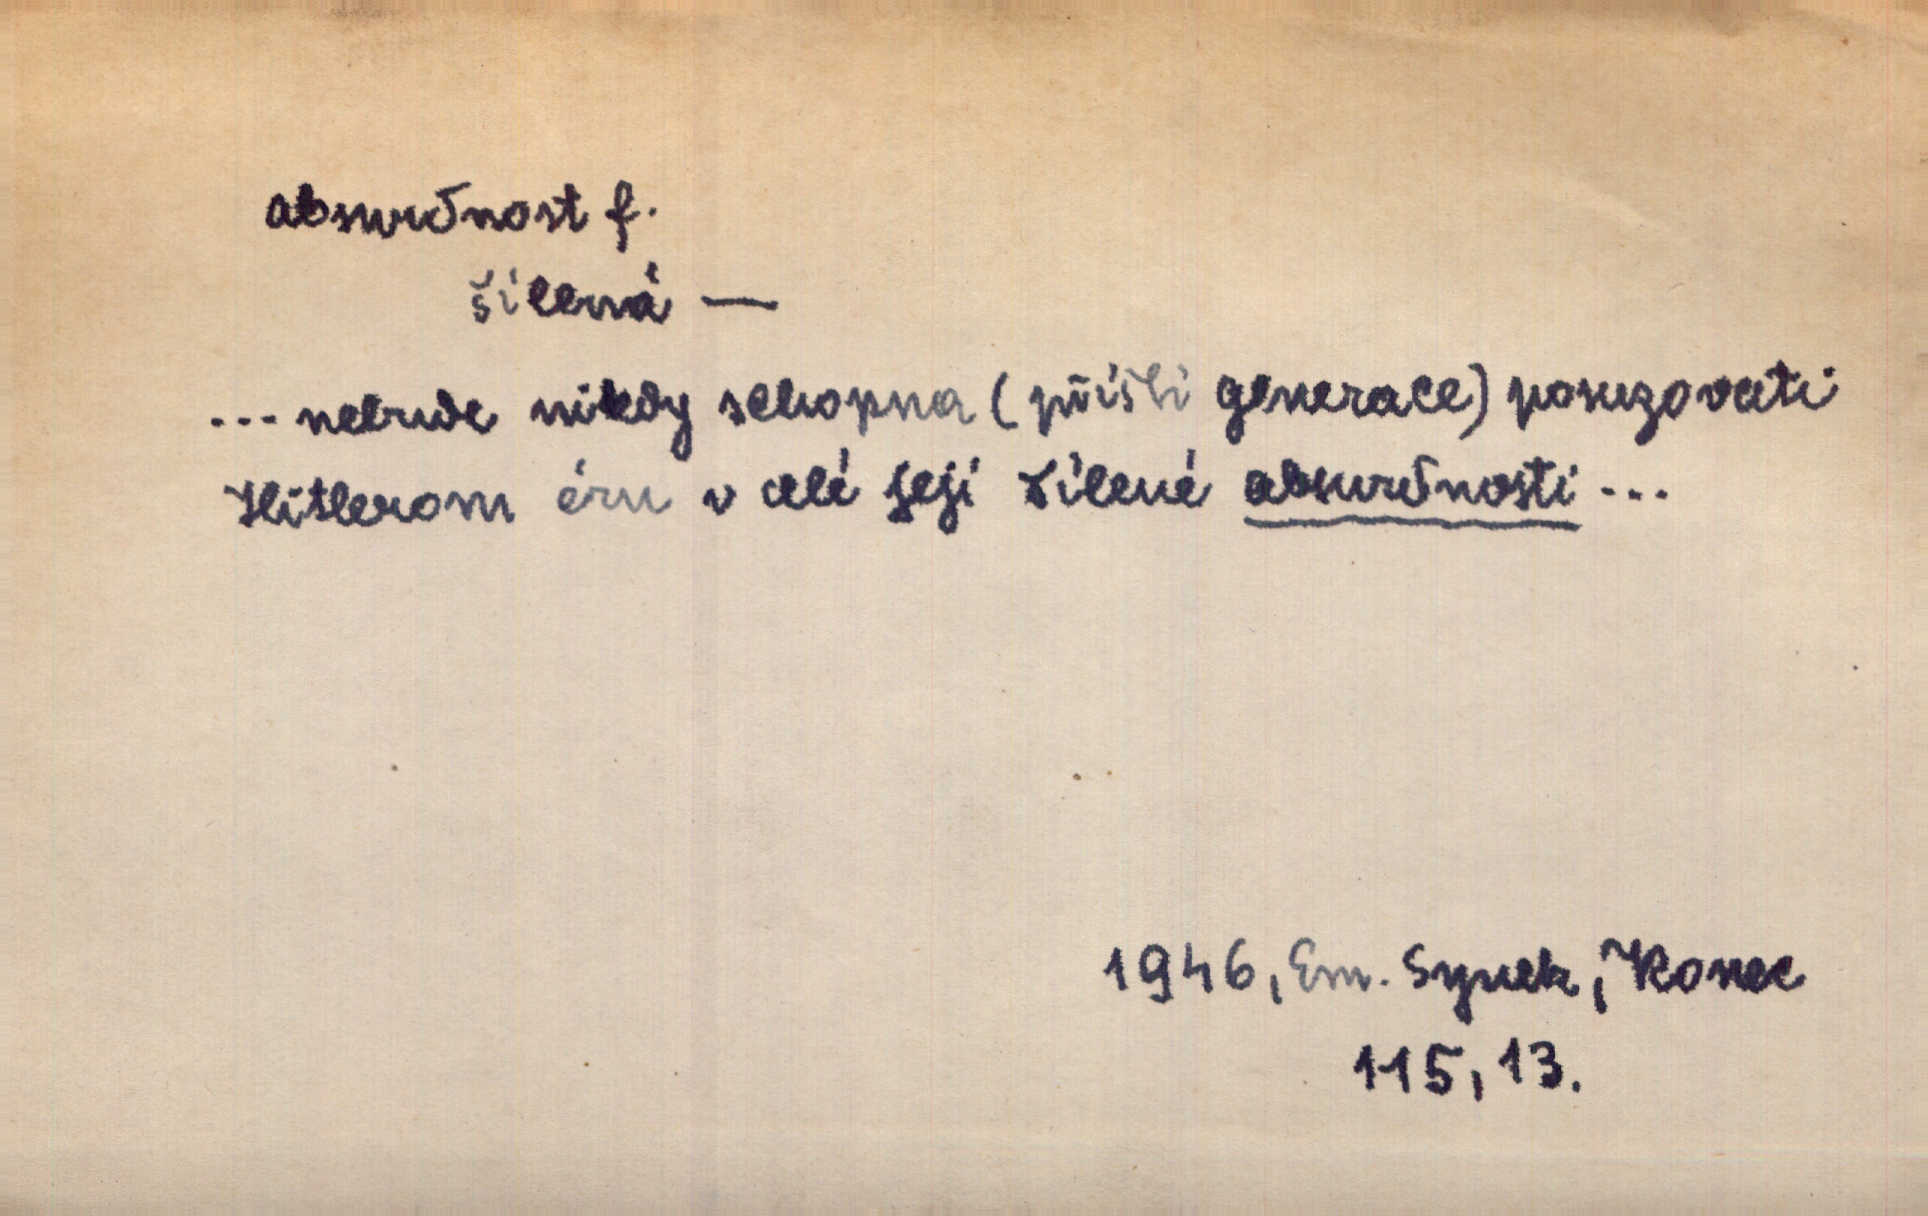 absurdnost f.
šílená —
... nebude nikdy schopna (příští generace) posuzovati
Hitlerom éru v celé její šílené absurdnosti ...
1946, Em. Synek, Konec
115, 13.